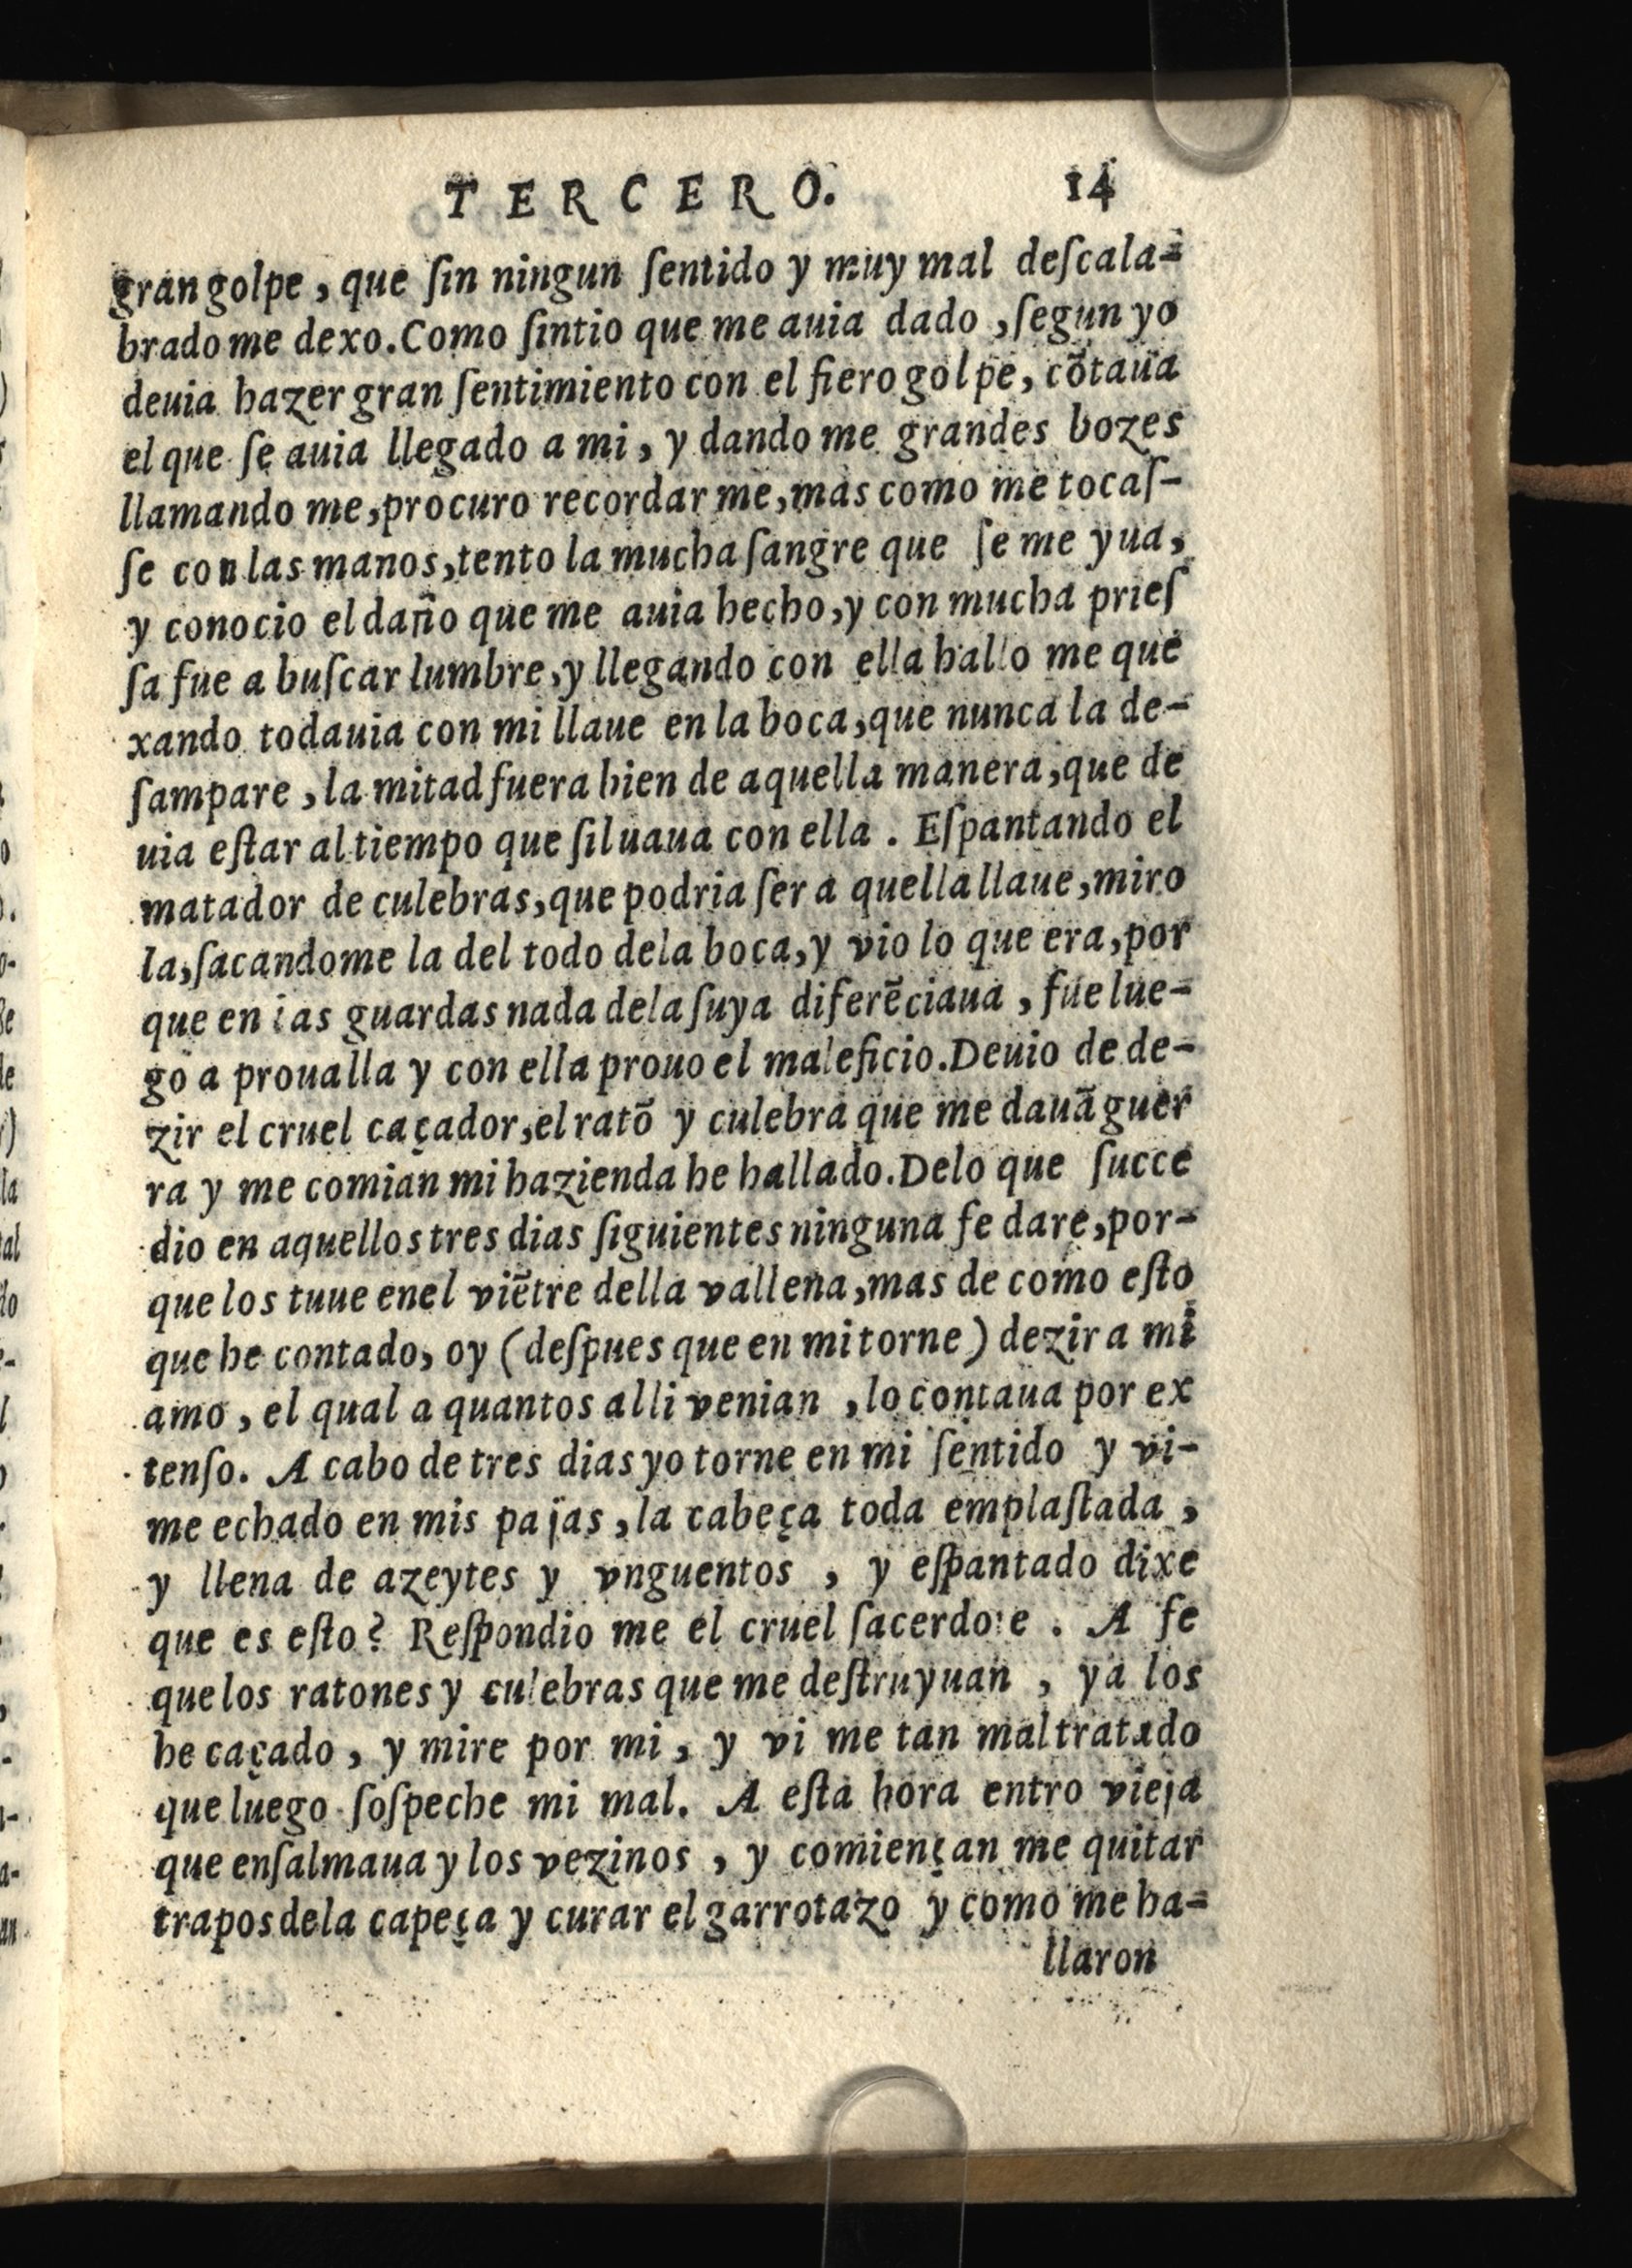 TERCERO. 14
gran golpe, que ſin ningun ſentido y muy mal deſcala-
brado me dexo. Como ſintio que me auia dado, ſegun yo
deuia hazer gran ſentimiento con el fiero golpe, cõtaua
el que ſe auia llegado a mi, y dando me grandes bozes
llamando me, procuro recordar me, mas como me tocaſ-
ſe con las manos, tento la mucha ſangre que ſe me yua,
y conocio el daño que me auia hecho, y con mucha prieſ
ſa fue a buſcar lumbre, y llegando con ella hallo me que
xando todauia con mi llaue en la boca, que nunca la de-
ſampare, la mitad fuera bien de aquella manera, que de
uia eſtar al tiempo que ſiluaua con ella. Eſpantando el
matador de culebras, que podria ſer a quella llaue, miro
la, ſacandome la del todo dela boca, y vio lo que era, por
que en las guardas nada dela ſuya diferẽciaua, fue lue-
go a proualla y con ella prouo el maleficio. Deuio de de-
zir el cruel caçador, el ratõ y culebra que me dauã guer
ra y me comian mi hazienda he hallado. Delo que ſucce
dio en aquellos tres dias ſiguientes ninguna fe dare, por-
que los tuue enel viẽtre della vallena, mas de como eſto
que he contado, oy (deſpues que en mi torne) dezir a mi
amo, el qual a quantos alli venian, lo contaua por ex
tenſo. A cabo de tres dias yo torne en mi ſentido y vi-
me echado en mis pajas, la cabeça toda emplaſtada,
y llena de azeytes y vnguentos, y eſpantado dixe
que es eſto? Reſpondio me el cruel ſacerdote. A fe
que los ratones y culebras que me deſtruyuan, ya los
he caçado, y mire por mi, y vi me tan maltratado
que luego ſoſpeche mi mal. A eſta hora entro vieja
que enſalmaua y los vezinos, y comiençan me quitar
trapos dela capeça y curar el garrotazo y como me ha-
llaron